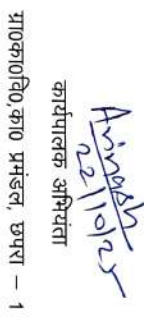 Avinash
22/10/25
कार्यपालक अभियंता
ग्रा०का०वि०,का० प्रमंडल, छपरा – 1